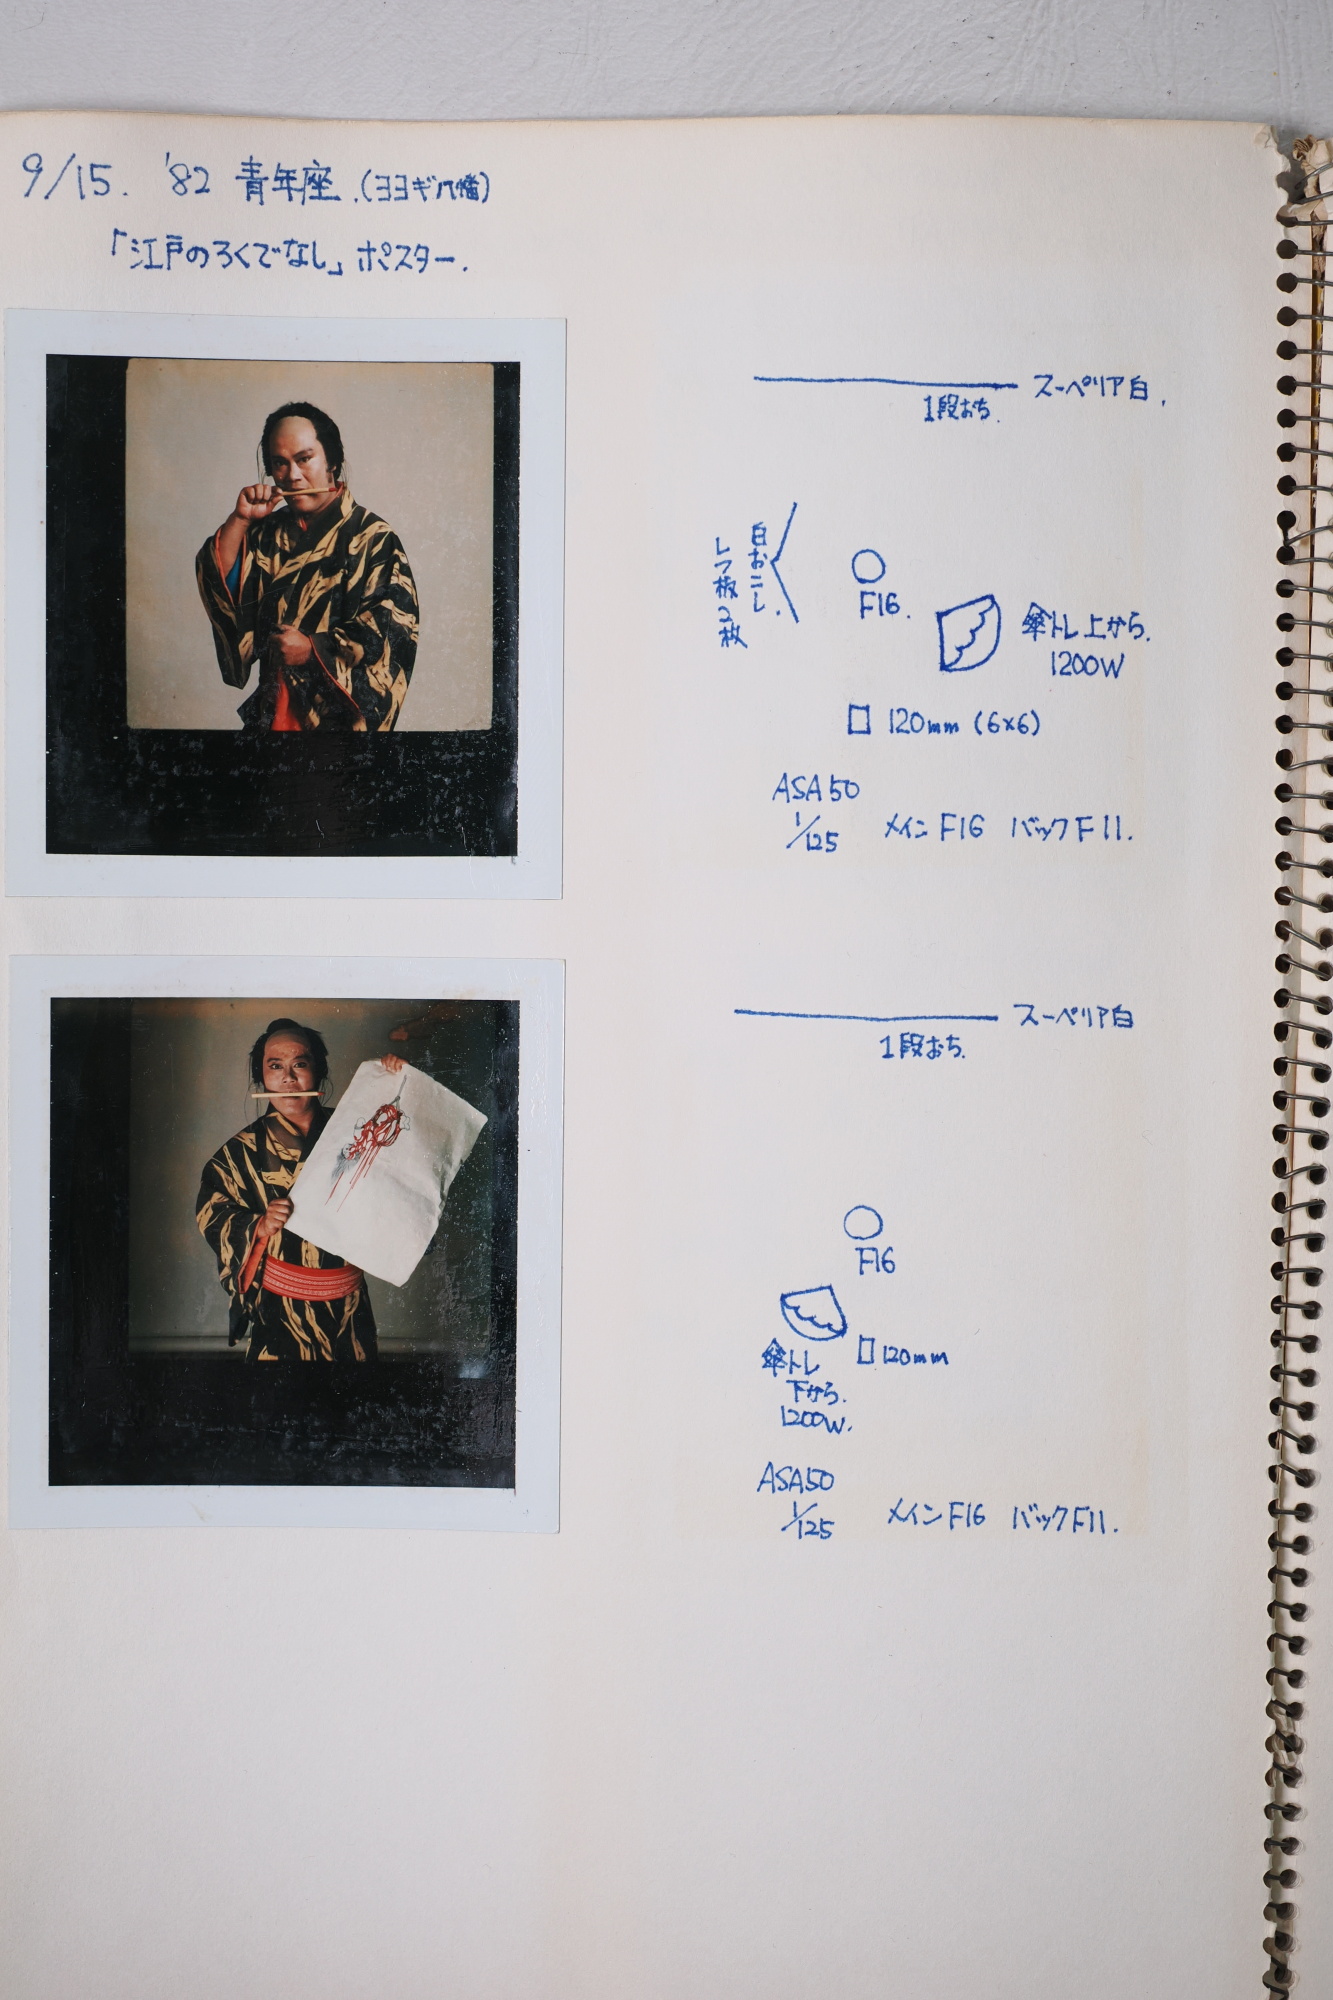 9/15. '82 青年座.(ヨヨギ八幡)
「江戸のろくでなし」ポスター.
スーペリア白.
1段おち.
白おこし.
レフ板2枚
F16.
傘トレ上から.
1200W
120mm (6×6)
ASA50
1/125 メインF16 バックF11.
スーペリア白
1段おち.
F16
傘トレ
下から.
1200W.
120mm
ASA50
1/125 メインF16 バックF11.